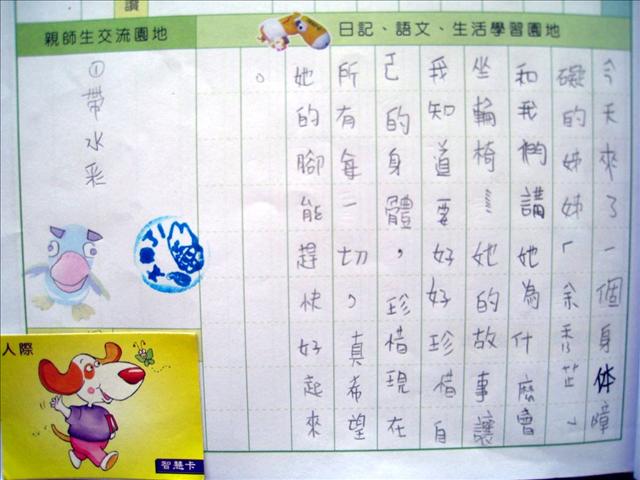 讚
親師生交流園地
日記、語文、生活學習園地
今天來了一個身体障
礙的姊姊「余秀芷」
和我們講她為什麼會
坐輪椅…她的故事讓
我知道要好好珍惜自
己的身體，珍惜現在
所有每一切，真希望
她的腳能趕快好起來
。
①帶水彩
人際
智慧卡